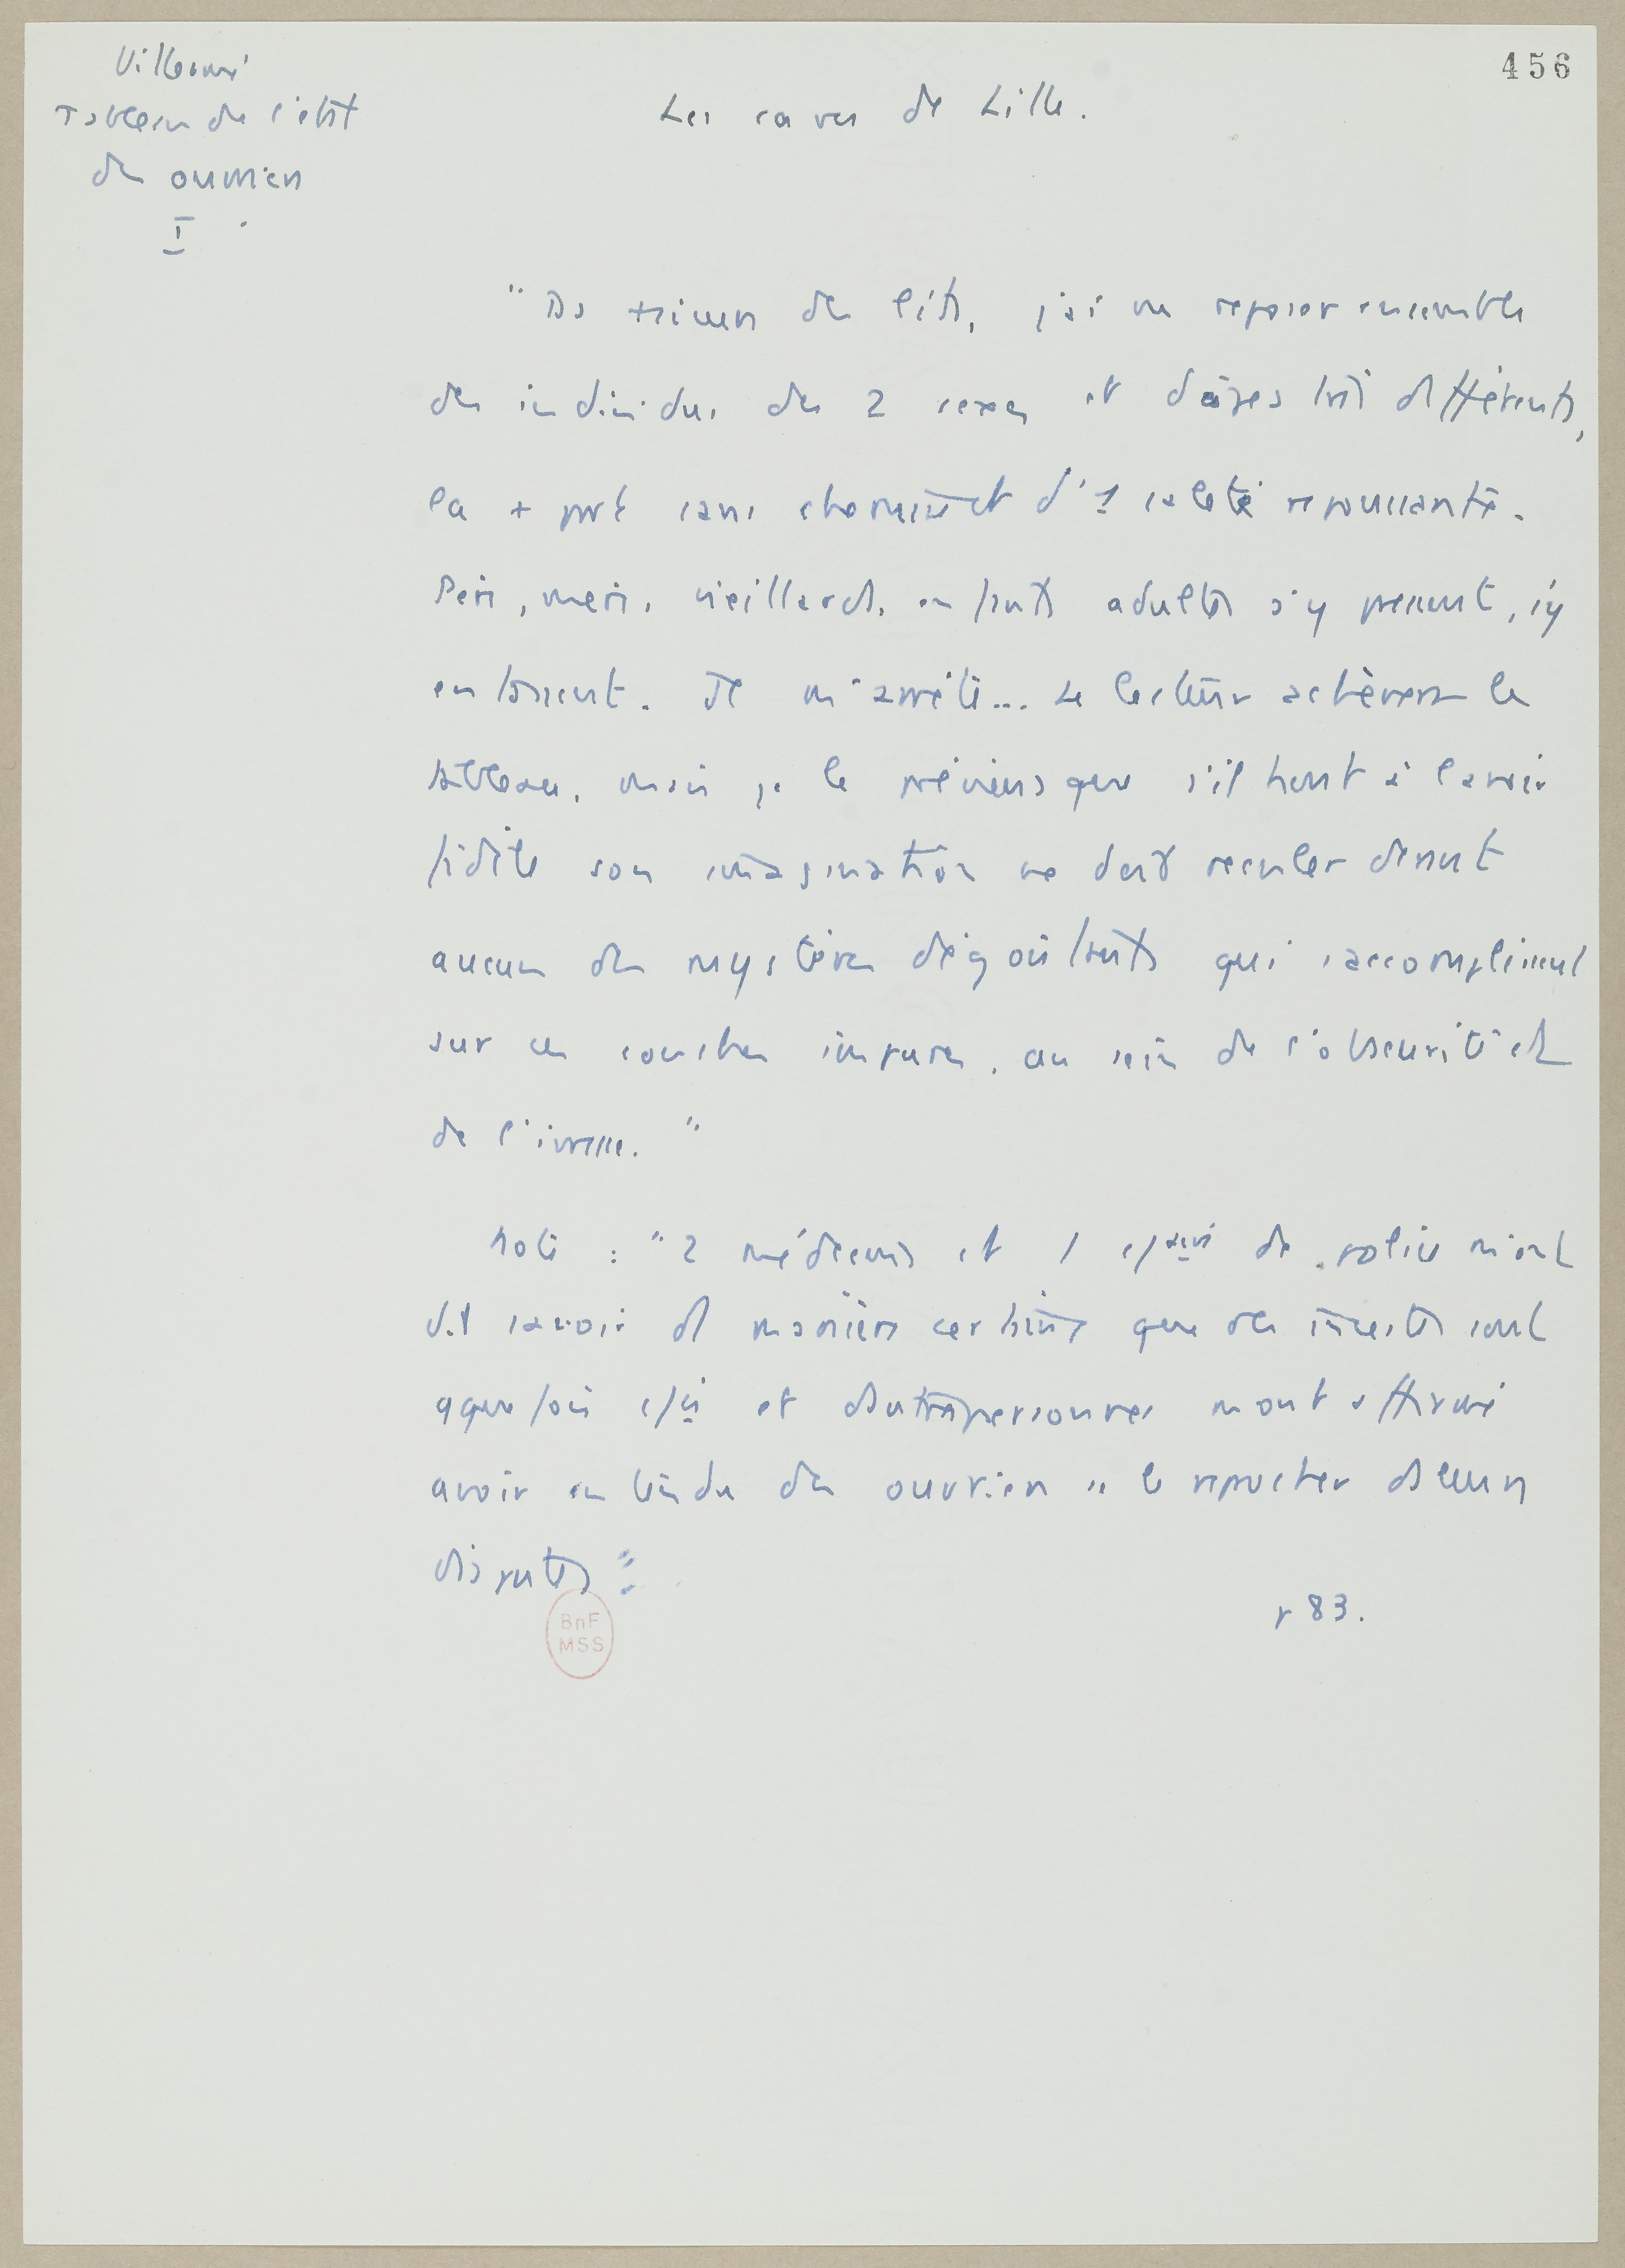 456
Villermé
Tableau de l'état
des ouvriers
I
Les caves de Lille.
"Ds plusieurs des lits, j'ai vu reposer ensemble
des individus des 2 sexes et d'âges très différents,
la + part sans chemise et d'1 saleté repoussante.
Père, mère, vieillards, enfants adultes s'y pressent, s'y
entassent. Je m'arrête... Le lecteur achèvera le
tableau, mais je le préviens que s'il tient à l'avoir
fidèle son imagination ne doit reculer devant
aucun des mystères dégoûtants qui s'accomplissent
sur ces couches impures, au sein de l'obscurité et
de l'ivresse."
Note : "2 médecins et 1 de police m'ont
dit savoir de manière certaine que des incestes sont
et d'autres personnes m'ont affirmé
avoir entendu des ouvriers se le reprocher ds leurs
disputes"
p 83.
BnF
MSS